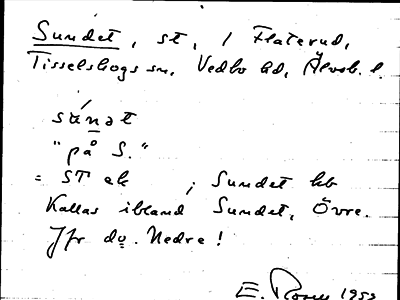 Sundet, st, i Flaterud,
Tisselskogs sn, Vedbo hd, Älvsb. l.
sunət
"på S."
= ST ek ; Sundet hb
Kallas ibland Sundet, Övre.
Jfr do. Nedre!
E. 1953